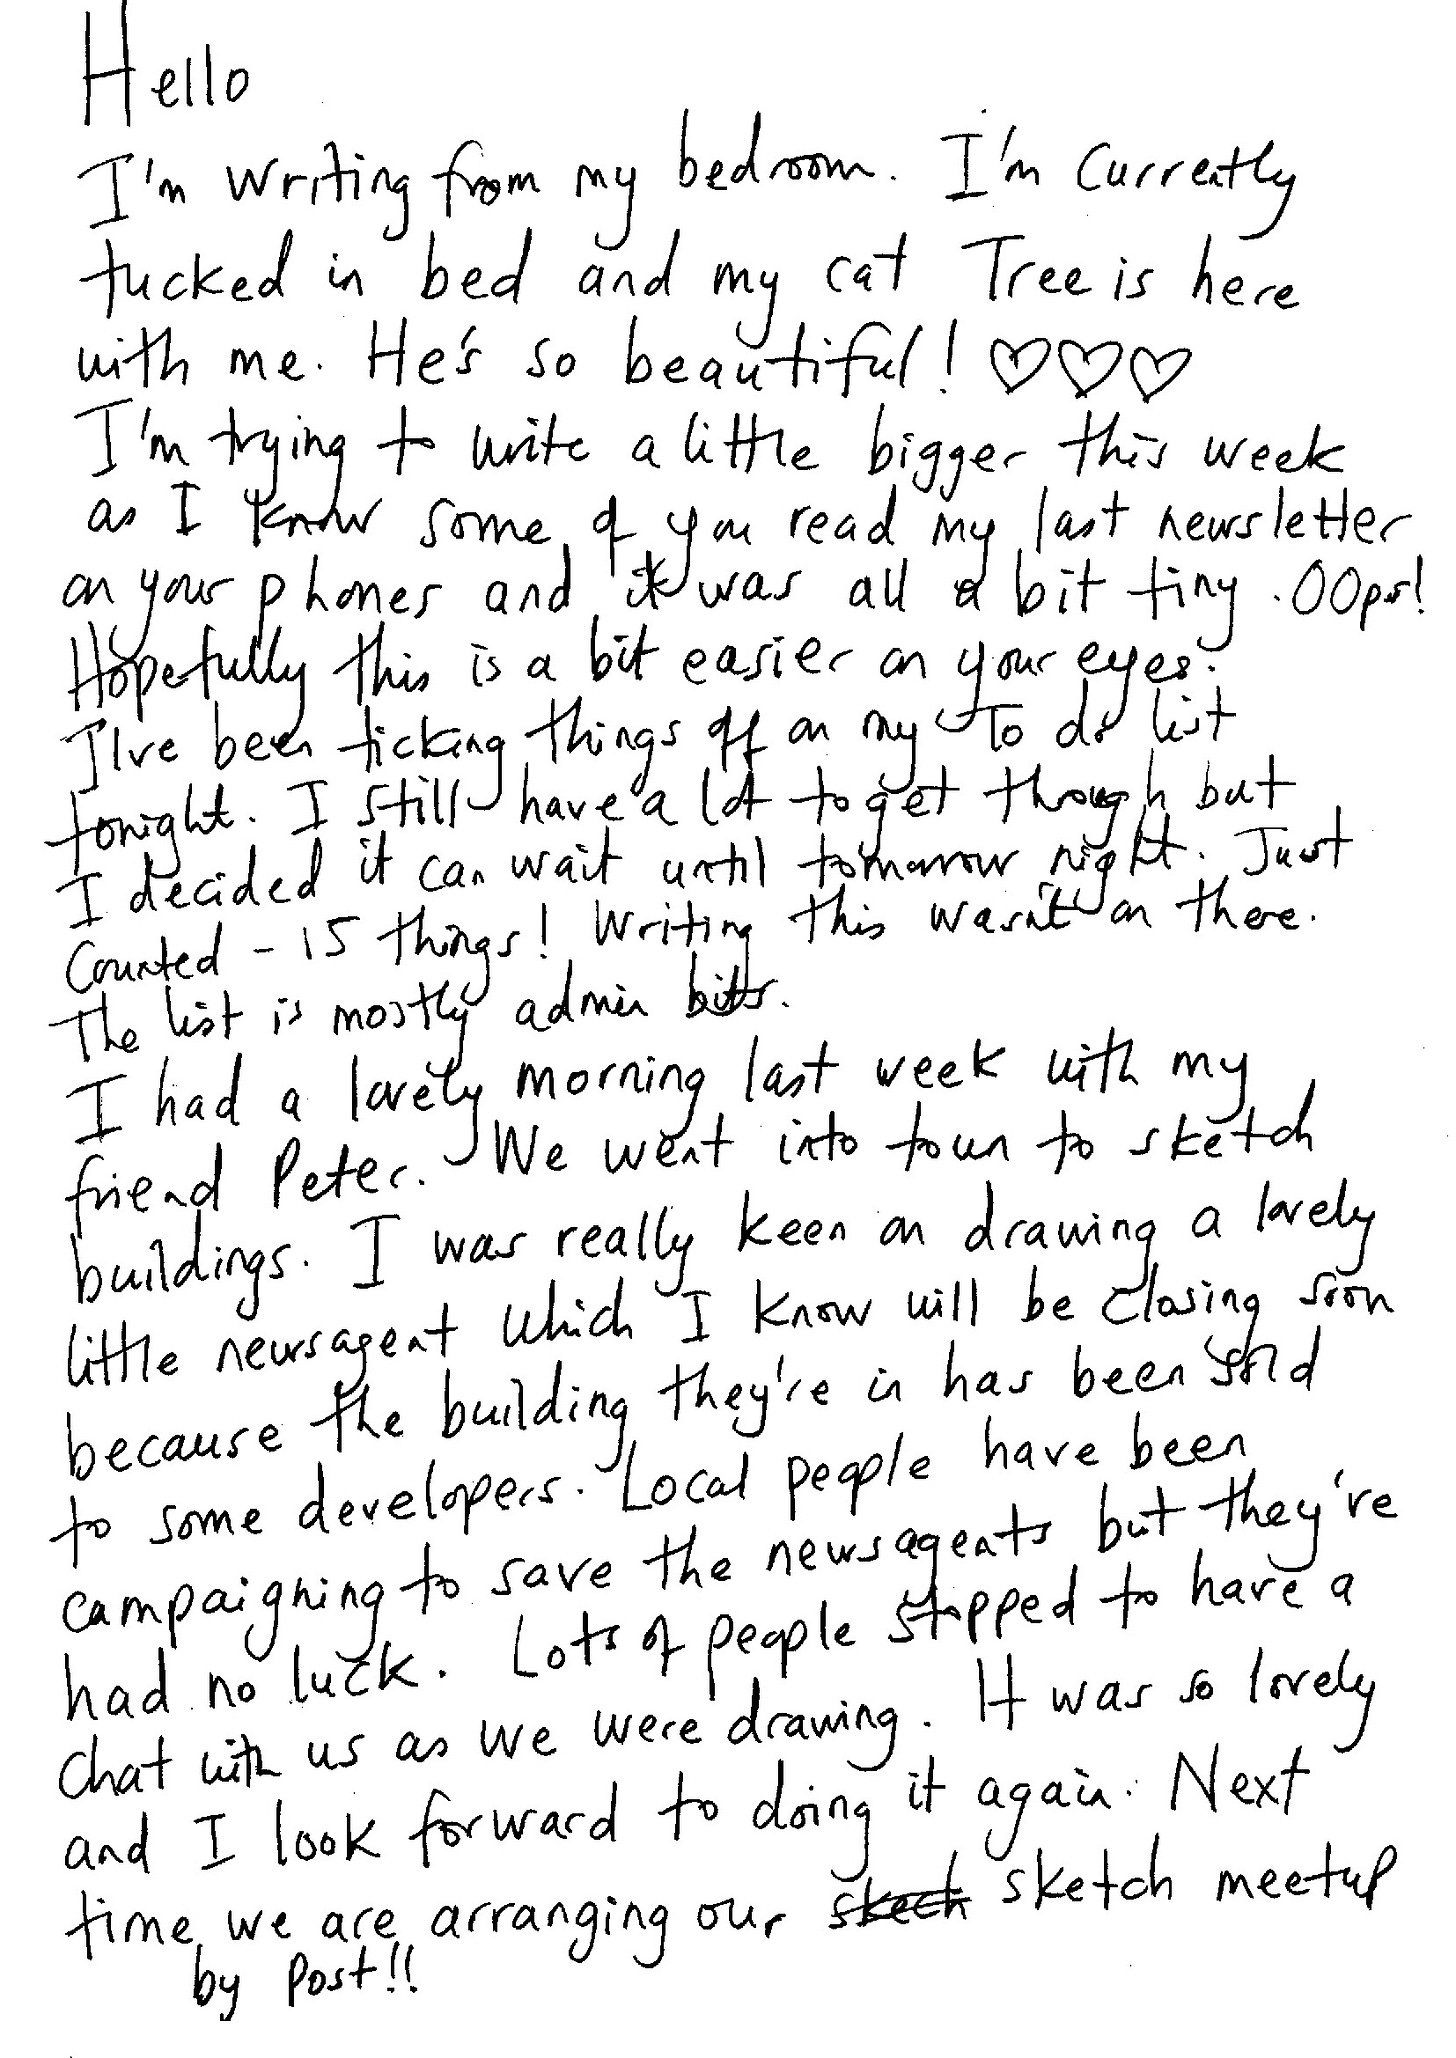 Hello
I'm writing from my bedroom. I'm currently
tucked in bed and my cat Tree is here
with me. He's so beautiful! ♡♡♡
I'm trying to write a little bigger this week
as I know some of you read my last newsletter
on your phones and it was all a bit tiny. OOps!
Hopefully this is a bit easier on your eyes.
I've been ticking things off on my To do list
tonight. I still have a lot to get though but
I decided it can wait until tomorrow night. Just
counted - 15 things! Writing this wasn't on there.
The list is mostly admin bits.
I had a lovely morning last week with my
friend Peter. We went into town to sketch
buildings. I was really keen on drawing a lovely
little newsagent which I know will be closing soon
because the building they're in has been sold
to some developers. Local people have been
campaigning to save the newsagents but they're
had no luck. Lots of people stopped to have a
chat with us as we were drawing. It was so lovely
and I look forward to doing it again. Next
time we are arranging our skech sketch meetup
by post!!